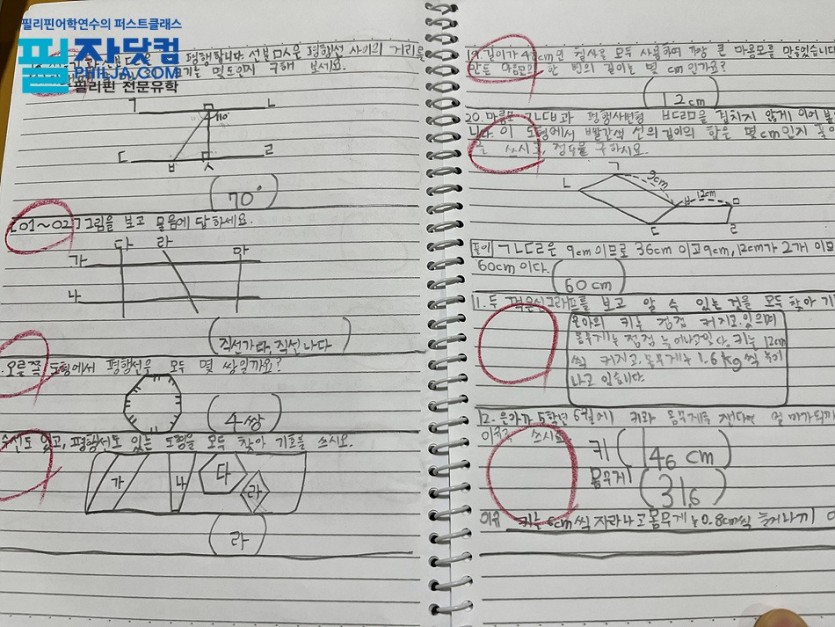 필리핀어학연수의 퍼스트클래스
필자닷컴
PHILJA.COM
필리핀 전문유학
평행합니다. 선분 ㅁㅅ은 평행선 사이의 거리을
기는 몇도인지 구해 보세요.
ㄱ ㄴ
110°
ㄷ ㅂ ㅅ ㄹ
(70°)
01~02 그림을 보고 물음에 답하세요.
다 라 마
가
나
(직선가다, 직선나다)
오른쪽 도형에서 평행선은 모두 몇 쌍일까요?
(4쌍)
수선도 있고, 평행선도 있는 도형을 모두 찾아 기호를 쓰시오.
가 나 다 라
(라)
길이가 48cm인 철사를 모두 사용하여 가장 큰 마름모를 만들었습니다
만든 마름모의 한 변의 길이는 몇 cm인가요?
(12cm)
20. 마름모 ㄱㄴㄷㅂ과 평행사변형 ㅂㄷㄹㅁ을 겹치지 않게 이어
니다. 이 도형에서 빨간색 선의 길이의 합은 몇cm인지 풀
쓰시고, 정답을 구하시오.
ㄱ 9cm
ㄴ ㅂ 12cm ㅁ
ㄷ ㄹ
풀이 ㄱㄴㄷㄹ은 9cm이므로 36cm이고 9cm, 12cm가 2개 이므
60cm이다. (60cm)
11. 두 꺾은선그래프를 보고 알 수 있는 것을 모두 찾아 기
은아의 키는 점점 커지고 있으며
몸무게는 점점 늘어나고있다. 키는 12cm
씩 커지고 몸무게는 1.6kg씩 늘어
나고 있습니다.
12. 은아가 5학년 6월에 키와 몸무게를 잰다면
쓰시오
키 (146 cm)
몸무게 (31.6)
이유 키는 6cm씩 자라나고 몸무게는 0.8cm씩 늘어나기